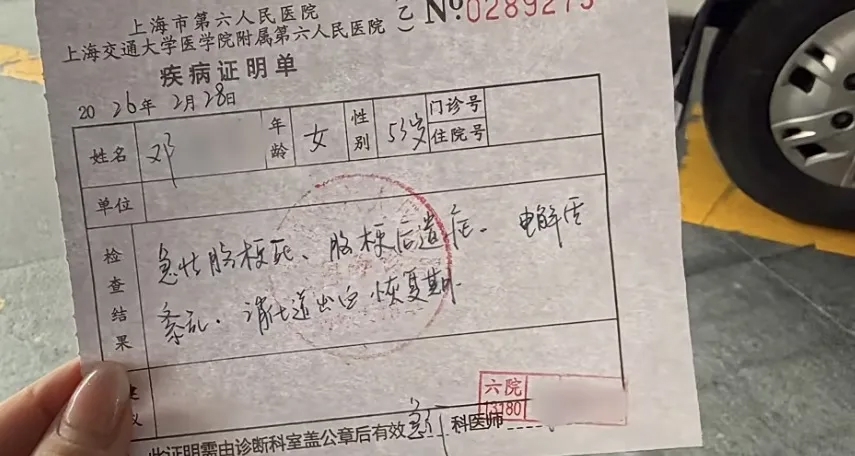 上海市第六人民医院
上海交通大学医学院附属第六人民医院
(乙) №0289275
疾病证明单
2026年2月28日
姓名 邓 年龄 女 性别 53岁 门诊号 住院号
单位
检查结果
急性脑梗死、脑梗后遗症、电解质
紊乱、消化道出血恢复期
建议
六院
13180
此证明需由诊断科室盖公章后有效 科医师